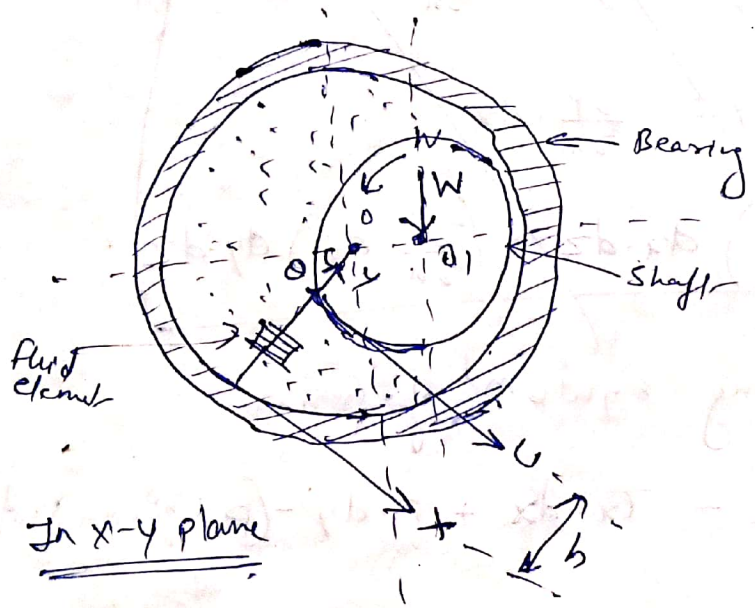 Bearing
N
W
O
O1
Shaft
θ
y
fluid
element
U
x
h
In x-y plane